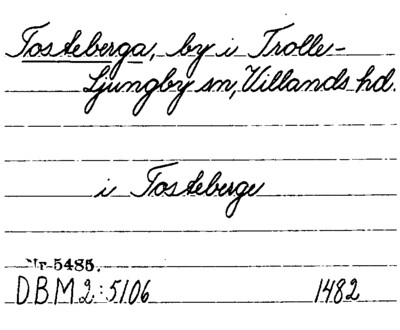 Tosteberga, by i Trolle-
Ljungby sn, Villands hd.
i Tosteberge
Nr 5485.
DBM 2:5106 1482